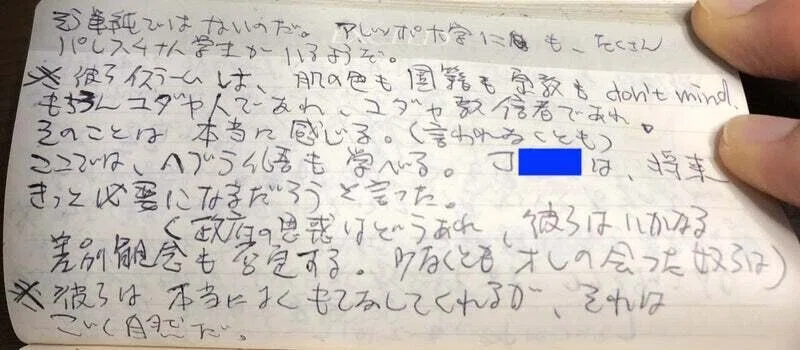 う単純ではないのだ。アレッポ大学にも、たくさん
パレスチナ人学生がいるようぞ。
※彼らイスラームは、肌の色も国籍も宗教もdon't mind.
もちろんユダヤ人であれ、ユダヤ教信者であれ
そのことは本当に感じる。(言われなくとも)
ここでは、ヘブライ語も学べる。J は、将来
きっと必要になるだろうと言った。
(政府の思惑はどうあれ、彼らはいかなる
差別観念も否定する。少なくともオレの会った奴らは)
※彼らは本当によくもてなしてくれるが、それは
ごく自然だ。